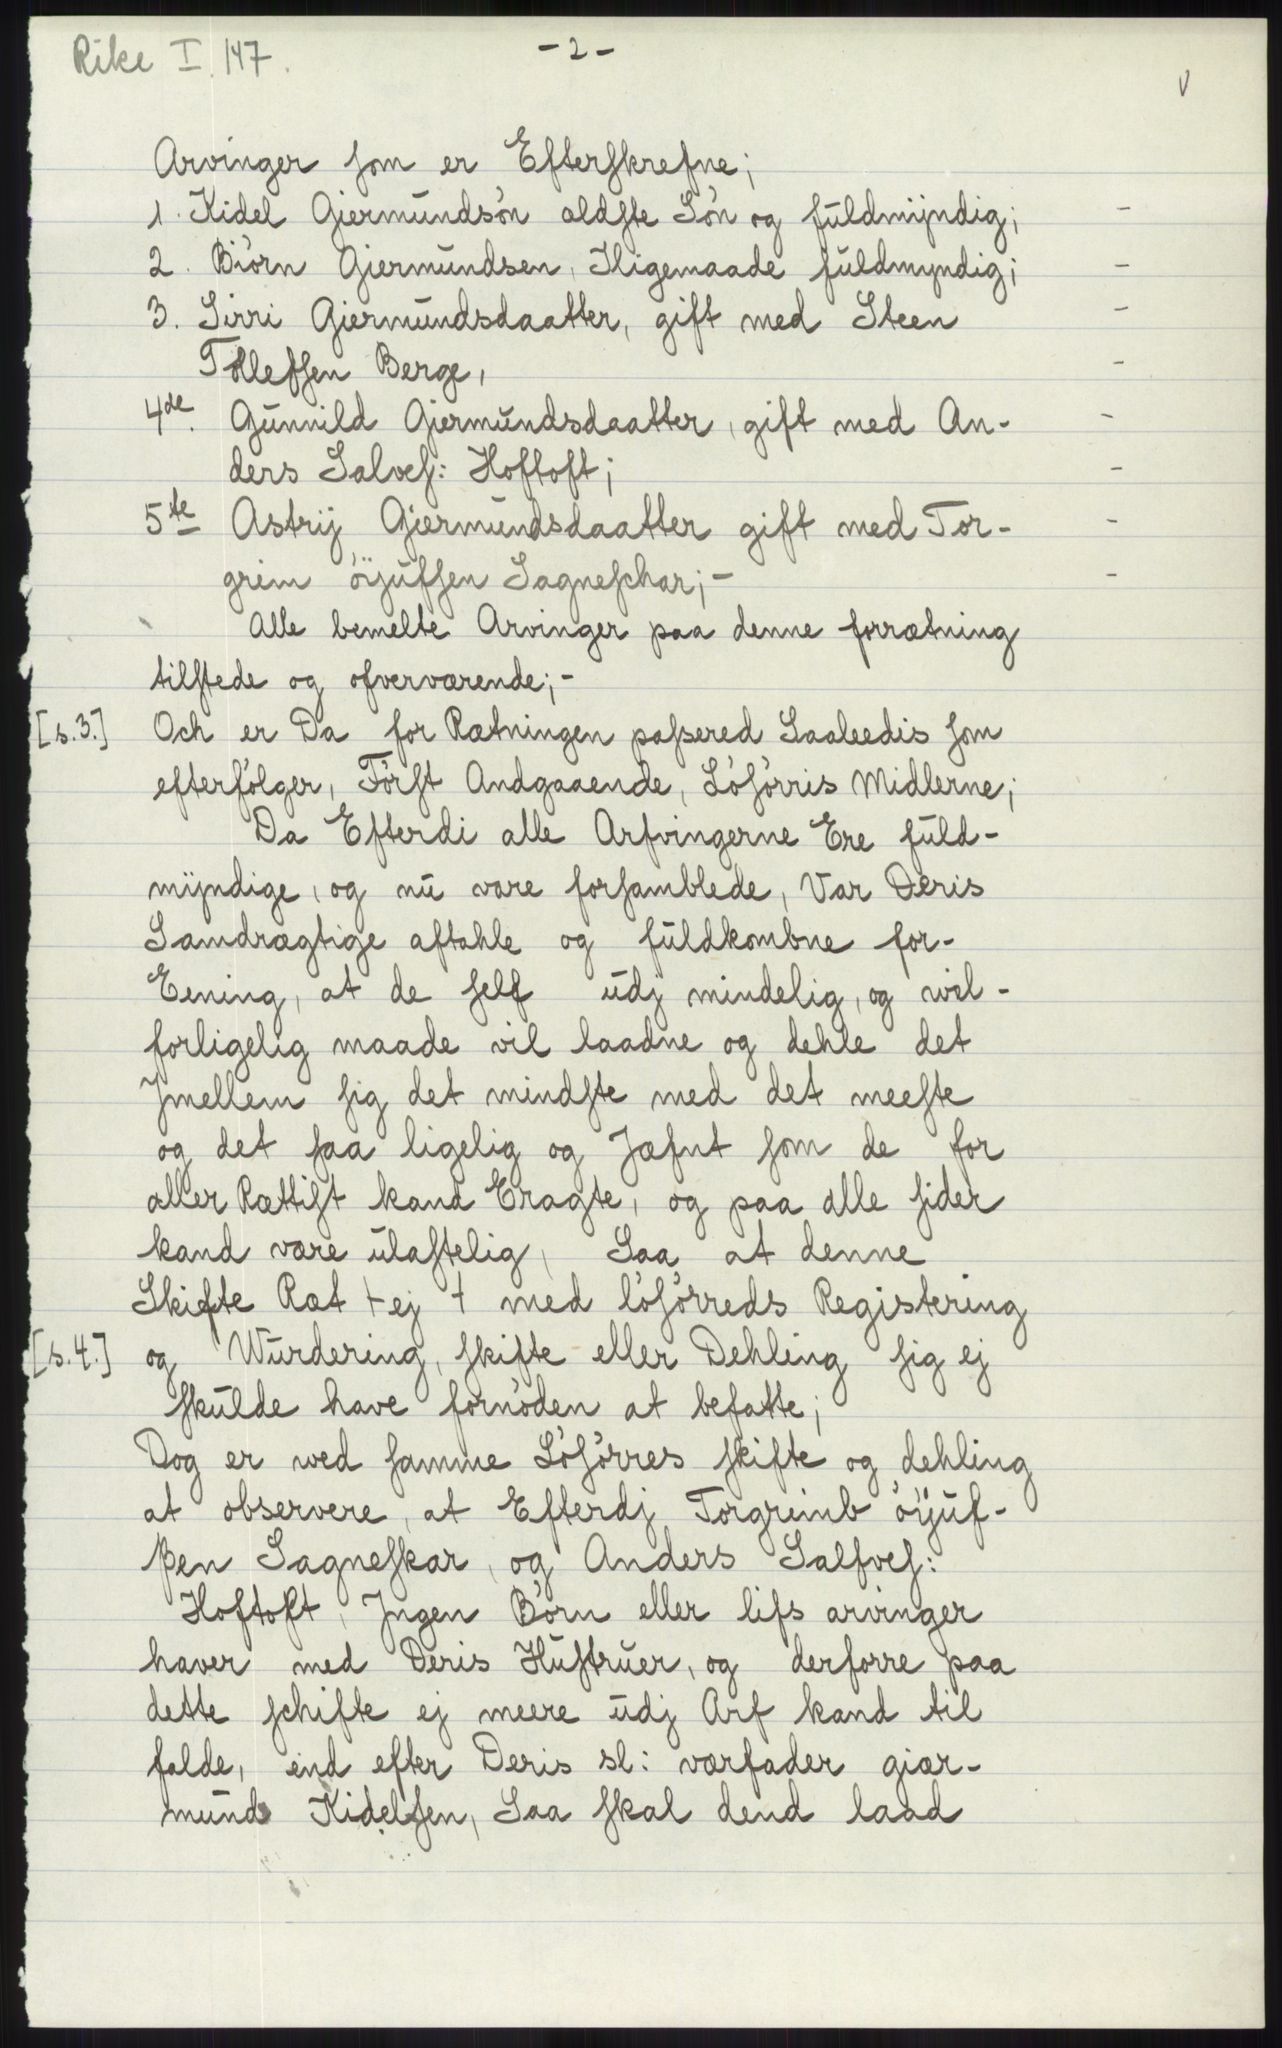 Rike I. 147.
- 2 -
V
Arvinger som er Efterskrefne;
1. Kidel Giermundsön aldste Sön og fuldmÿndig; -
2. Biörn Giermundsen, Iligemaade fuldmyndig; -
3. Sirri Giermundsdaatter, gift med Steen -
Tollefsen Berge, -
4de. Gunnild Gjermundsdaatter, gift med An- -
ders Salves: Hoftoft; -
5te Astrij Gjermundsdaatter gift med Tor- -
grim öÿufsen Sagneschar; - -
Alle bemelte Arvinger paa denne forrætning
tilstede og ofverværende; -
[s.3.] Och er Da for Rætningen passered Saaleedis som
efterfölger, Först Andgaaende, Lösörris Midlerne;
Da Efterdi alle Arfvingerne Ere fuld-
mÿndige, og nu vare forsamblede, Var Deris
Samdrægtige aftahle og fuldkombne for-
Eening, at de self udj mindelig, og wil-
forligelig maade vil laadne og dehle det
Jmellem sig det mindste med det meeste
og det saa ligelig og Jæfnt som de for
aller Rættist kand Eragte, og paa alle sider
kand være ulastelig, Saa at denne
Skifte Ræt + ej + med lösörreds Registering
[s.4.] og Wurdering, skifte eller Dehling sig ej
skulde have fornöden at befatte;
Dog er wed samme Lösörres skifte og dehling
at observere, at Efterdj Torgrimb öÿuf-
ßen Sagneskar, og Anders Salfves:
Hoftoft, Jngen Börn eller lifs arvinger
haver med Deris Hustruer, og derforre paa
dette schifte ej meere udj Arf kand til
falde, end efter Deris sl: værfader giær-
mund Kidelsen, Saa skal dend laad